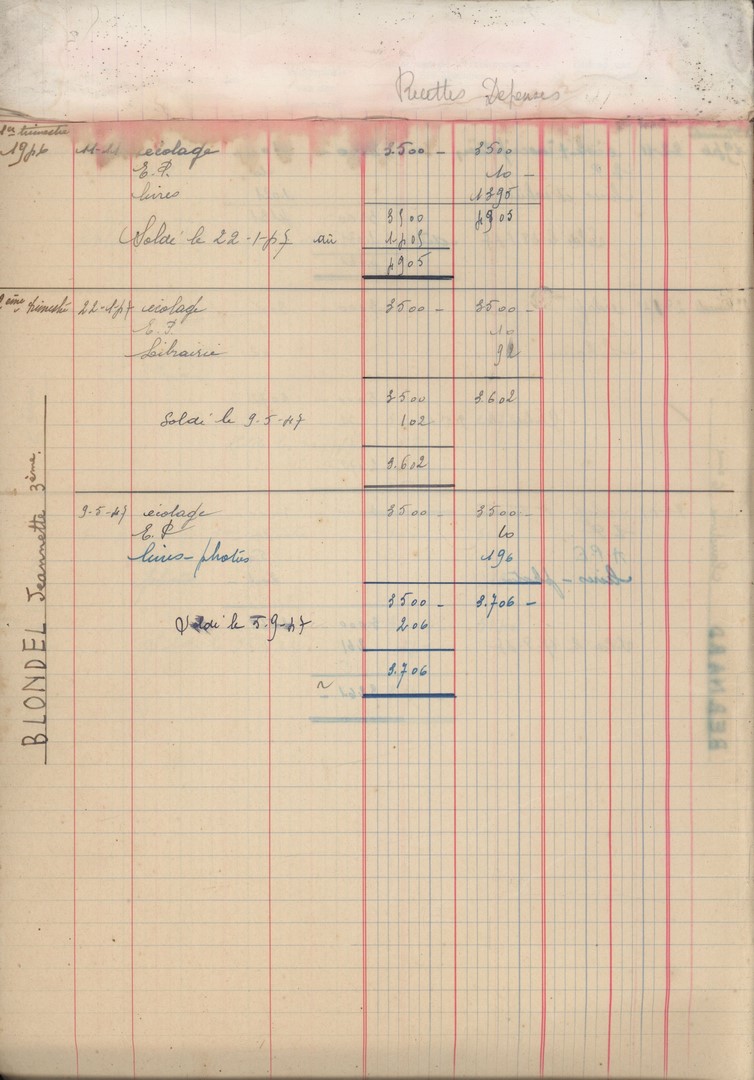 Recettes Depenses
1er trimestre
1946 11-11 écolage 3.500 - 3500
E.P. 10 -
livres 1395
3500 4905
Soldé le 22-1-47 au 1405
4905
2ème trimestre 22-1-47 écolage 3500 - 3500 -
E.P. 10
Librairie 92
3500 3.602
Soldé le 9-5-47 102
3.602
9-5-47 écolage 3500 - 3500 -
E.P. 10
livres-photos 196
3500 - 3.706 -
Soldé le 5-9-47 206
3.706
BLONDEL Jeannette 3ème.